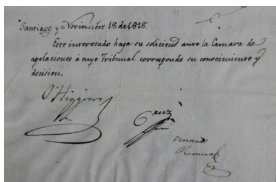 Santiago y Noviembre 18 de 1818.
Este interesado haga su solicitud ante la Camara de
apelaciones à cuyo Tribunal corresponde su conocimiento y
decision.
O'Higgins